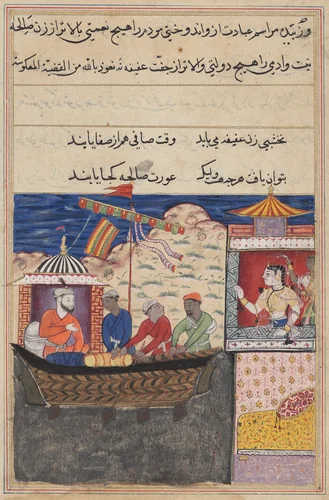 وزیبد مراسم عبادت از و اند وختی مرد را هیچ نعمتی بالاتر از زن صالحه
نیست وادی را هیچ دولتی والاتر از جفت عفیفه نه نعوذ بالله من القضیة المعکوسة
نخشبی زن عفیفه می باید وقت صافی هم از صفا یابند
بتوان یافت هر چه هست ولیک عورت صالحه کجا یابند